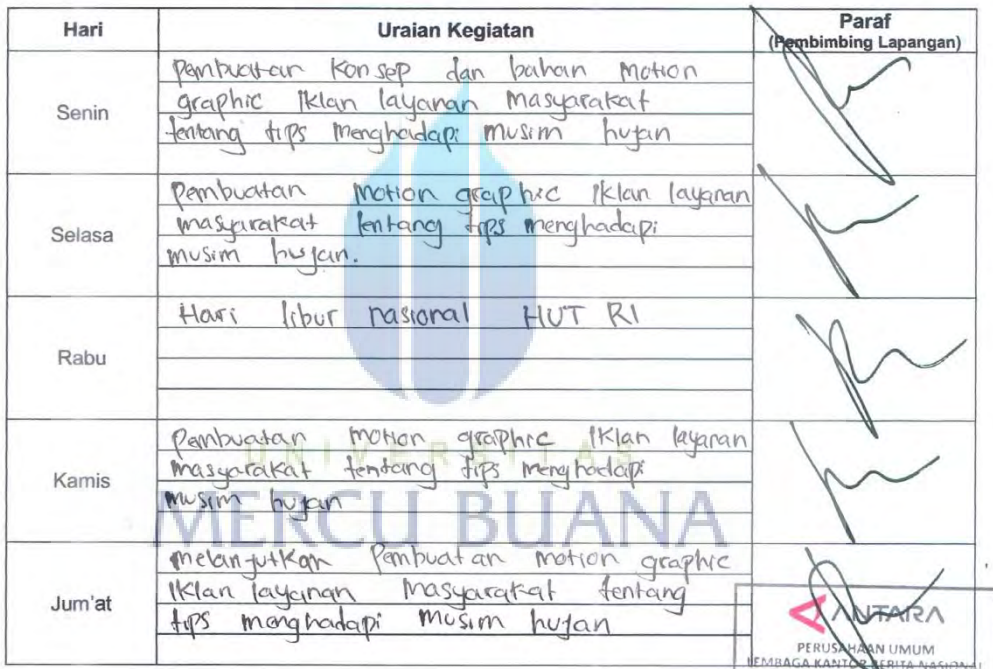 Hari Uraian Kegiatan Paraf
(Pembimbing Lapangan)
Senin
Pembuatan Konsep dan bahan motion
graphic Iklan layanan masyarakat
tentang tips menghadapi musim hujan
Selasa
Pembuatan motion graphic Iklan layanan
masyarakat tentang tips menghadapi
musim hujan.
Rabu
Hari libur nasional HUT RI
Kamis
Pembuatan motion graphic Iklan layanan
masyarakat tentang tips menghadapi
musim hujan
UNIVERSITAS
MERCU BUANA
Jum'at
melanjutkan Pembuatan motion graphic
Iklan layanan masyarakat tentang
tips menghadapi musim hujan
ANTARA
PERUSAHAAN UMUM
LEMBAGA KANTOR BERITA NASIONAL